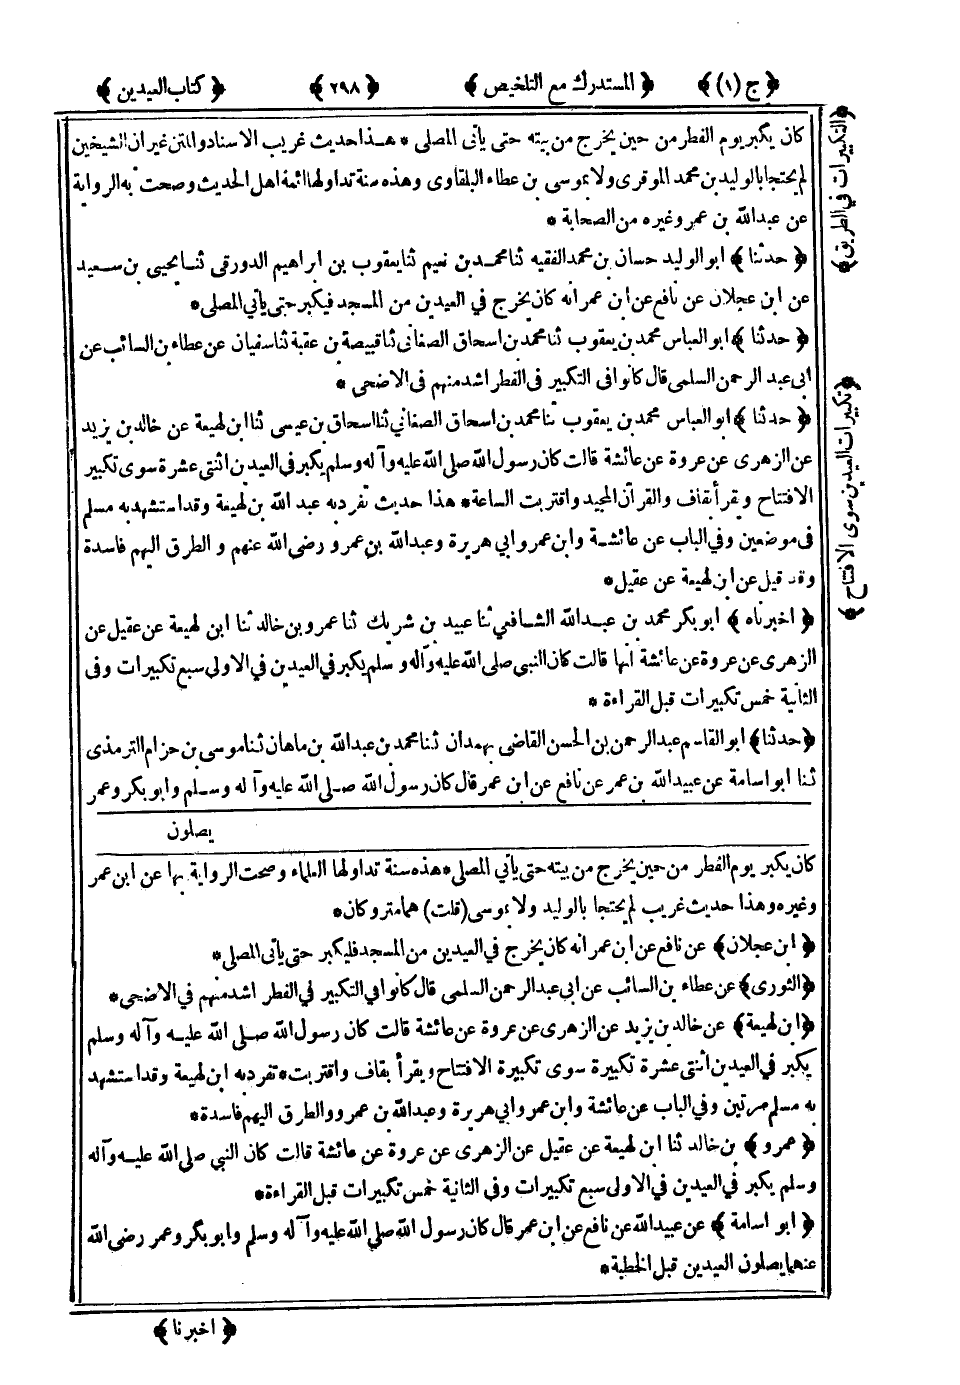 ﴿ ج (١) ﴾ ﴿ المستدرك مع التلخيص ﴾ ﴿ ٢٩٨ ﴾ ﴿ كتاب العيدين ﴾
كان يكبر يوم الفطر من حين يخرج من بيته حتى يأتى المصلى * هذا حديث غريب الاسناد والمتن غير ان الشيخين
لم يحتجا بالوليد بن محمد الموقرى ولا بموسى بن عطاء البلقاوى وهذه سنة تداولها ائمة اهل الحديث وصحت به الرواية
عن عبدالله بن عمر وغيره من الصحابة *
﴿ حدثنا ﴾ ابو الوليد حسان بن محمد الفقيه ثنا محمد بن نعيم ثنا يعقوب بن ابراهيم الدورقى ثنا يحيى بن سعيد
عن ابن عجلان عن نافع عن ابن عمر انه كان يخرج في العيدين من المسجد فيكبر حتى يأتي المصلى *
﴿ حدثنا ﴾ ابو العباس محمد بن يعقوب ثنا محمد بن اسحاق الصغانى ثنا قبيصة بن عقبة ثنا سفيان عن عطاء بن السائب عن
ابى عبد الرحمن السلمى قال كانوا فى التكبير فى الفطر اشد منهم فى الاضحى *
﴿ حدثنا ﴾ ابو العباس محمد بن يعقوب ثنا محمد بن اسحاق الصغاني ثنا اسحاق بن عيسى ثنا ابن لهيعة عن خالد بن يزيد
عن الزهرى عن عروة عن عائشة قالت كان رسول الله صلى الله عليه وآله وسلم يكبر فى العيدين اثنتى عشرة سوى تكبير
الافتتاح ويقرأ بقاف والقرآن المجيد واقتربت الساعة * هذا حديث تفرد به عبد الله بن لهيعة وقد استشهد به مسلم
فى موضعين وفي الباب عن عائشة وابن عمر وابي هريرة وعبدالله بن عمرو رضى الله عنهم و الطرق اليهم فاسدة
وقد قيل عن ابن لهيعة عن عقيل *
﴿ اخبرناه ﴾ ابو بكر محمد بن عبدالله الشافعي ثنا عبيد بن شريك ثنا عمرو بن خالد ثنا ابن لهيعة عن عقيل عن
الزهرى عن عروة عن عائشة انها قالت كان النبي صلى الله عليه وآله وسلم يكبر في العيدين في الاولى سبع تكبيرات وفى
الثانية خمس تكبيرات قبل القراءة *
﴿ حدثنا ﴾ ابو القاسم عبد الرحمن بن الحسن القاضى بهمدان ثنا محمد بن عبدالله بن ماهان ثنا موسى بن حزام الترمذى
ثنا ابو اسامة عن عبيد الله بن عمر عن نافع عن ابن عمر قال كان رسول الله صلى الله عليه وآله وسلم وابو بكر وعمر
يصلون
كان يكبر يوم الفطر من حين يخرج من بيته حتى يأتي المصلى * هذه سنة تداولها العلماء وصحت الرواية بها عن ابن عمر
وغيره وهذا حديث غريب لم يحتجا بالوليد ولا بموسى (قلت) هما متروكان *
﴿ ابن عجلان ﴾ عن نافع عن ابن عمر انه كان يخرج في العيدين من المسجد فليكبر حتى يأتى المصلى *
﴿ الثورى ﴾ عن عطاء بن السائب عن ابى عبد الرحمن السلمى قال كانوا في التكبير في الفطر اشد منهم في الاضحى *
﴿ ابن لهيعة ﴾ عن خالد بن يزيد عن الزهرى عن عروة عن عائشة قالت كان رسول الله صلى الله عليه وآله وسلم
يكبر في العيدين اثنتى عشرة تكبيرة سوى تكبيرة الافتتاح ويقرأ بقاف واقتربت * تفرد به ابن لهيعة وقد استشهد
به مسلم مرتين وفي الباب عن عائشة وابن عمر وابي هريرة وعبدالله بن عمرو والطرق اليهم فاسدة *
﴿ عمرو ﴾ بن خالد ثنا ابن لهيعة عن عقيل عن الزهرى عن عروة عن عائشة قالت كان النبي صلى الله عليه وآله
وسلم يكبر في العيدين في الاولى سبع تكبيرات وفى الثانية خمس تكبيرات قبل القراءة *
﴿ ابو اسامة ﴾ عن عبيدالله عن نافع عن ابن عمر قال كان رسول الله صلى الله عليه وآله وسلم وابو بكر وعمر رضى الله
عنهما يصلون العيدين قبل الخطبة *
﴿ التكبيرات في الطريق ﴾
﴿ تكبيرات العيدين سوى الافتتاح ﴾
﴿ اخبرنا ﴾